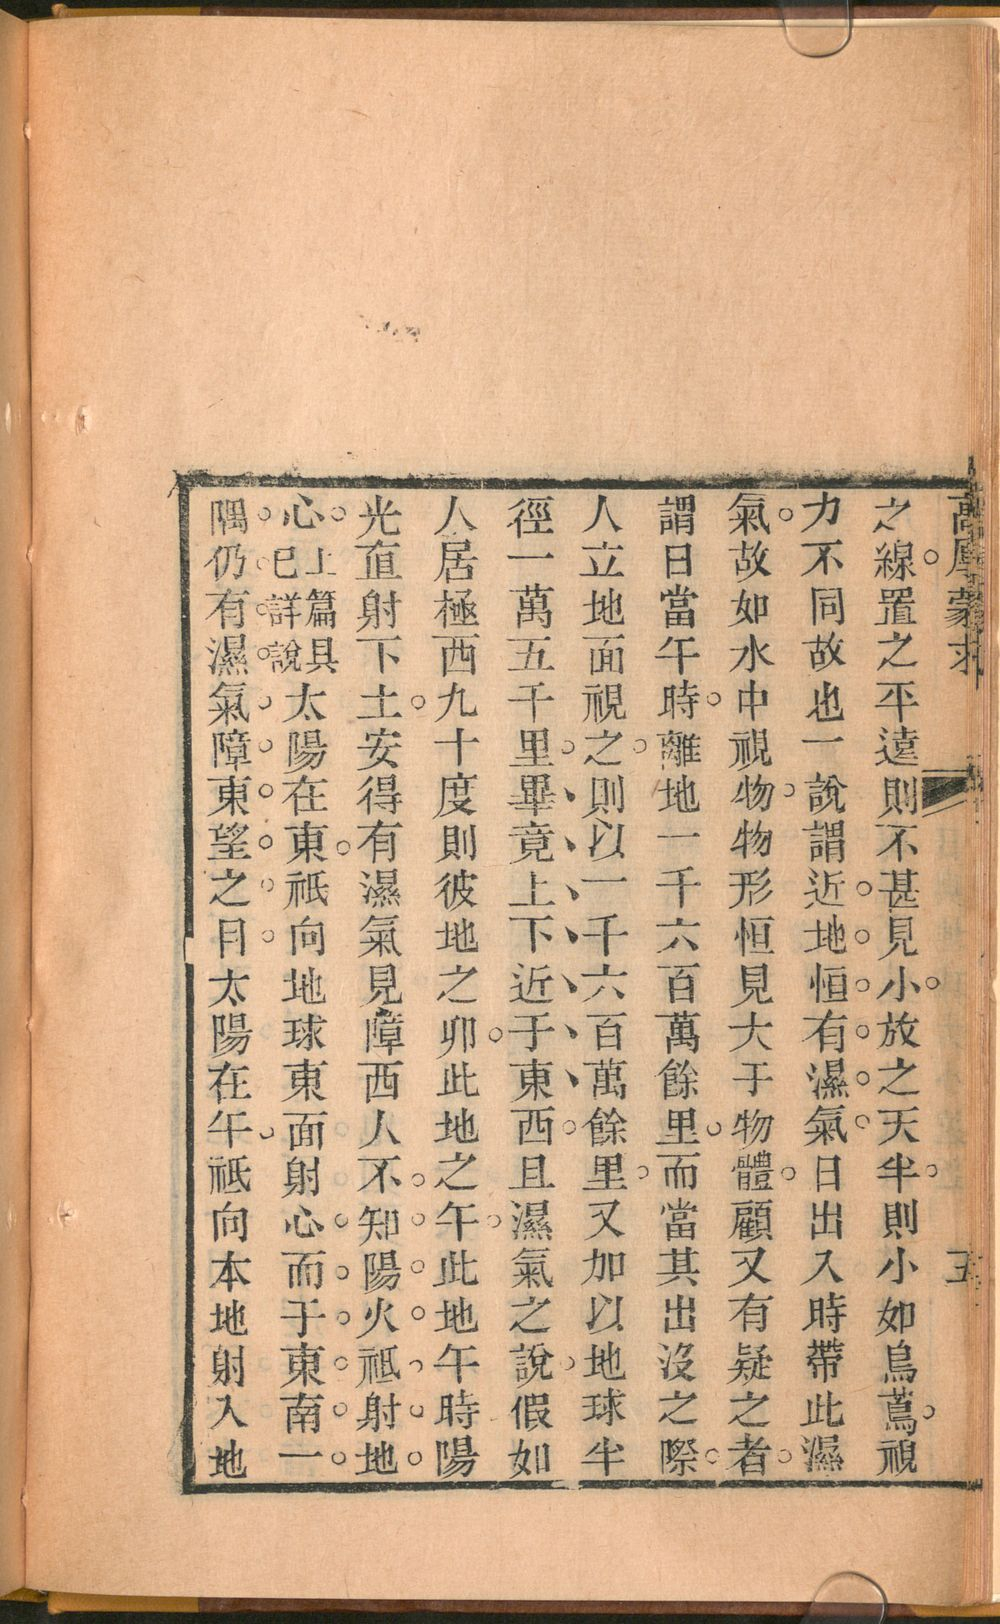 高厚蒙求
五
之線置之平遠則不甚見小放之天半則小如烏蔦視
力不同故也一說謂近地恒有濕氣日出入時帶此濕
氣故如水中視物物形恒見大于物體顧又有疑之者
謂日當午時離地一千六百萬餘里而當其出沒之際
人立地面視之則以一千六百萬餘里又加以地球半
徑一萬五千里畢竟上下近于東西且濕氣之說假如
人居極西九十度則彼地之卯此地之午此地午時陽
光直射下土安得有濕氣見障西人不知陽火祗射地
心上篇具已詳說太陽在東祗向地球東面射心而于東南一
隅仍有濕氣障東望之目太陽在午祗向本地射入地